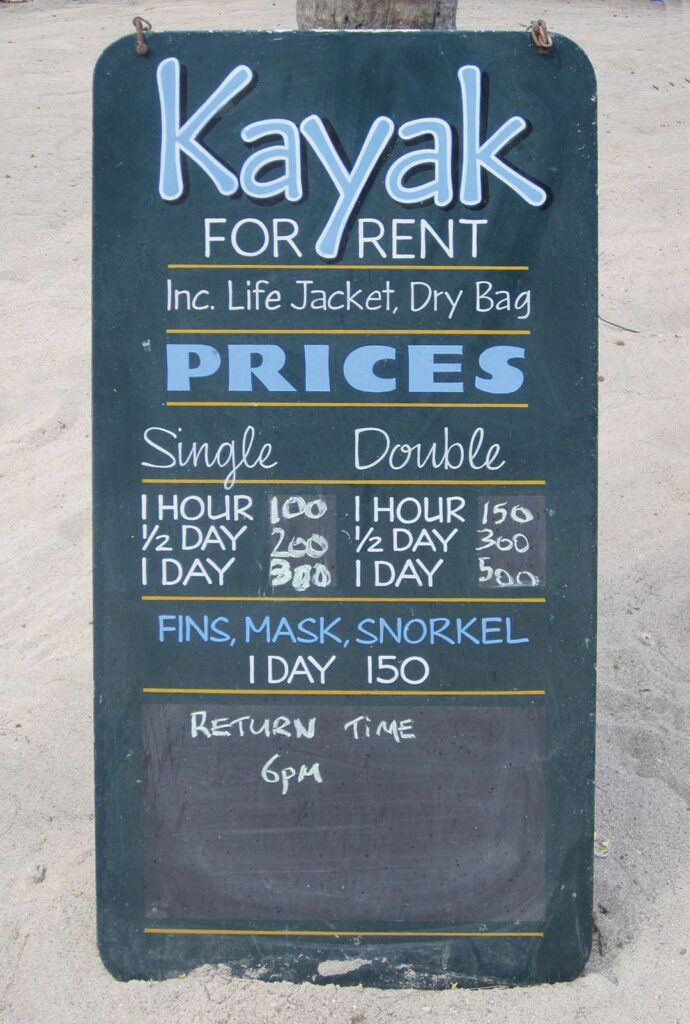 Kayak
FOR RENT
Inc. Life Jacket, Dry Bag
PRICES
Single Double
1 HOUR 100 1 HOUR 150
½ DAY 200 ½ DAY 300
1 DAY 300 1 DAY 500
FINS, MASK, SNORKEL
1 DAY 150
RETURN TIME
6pm